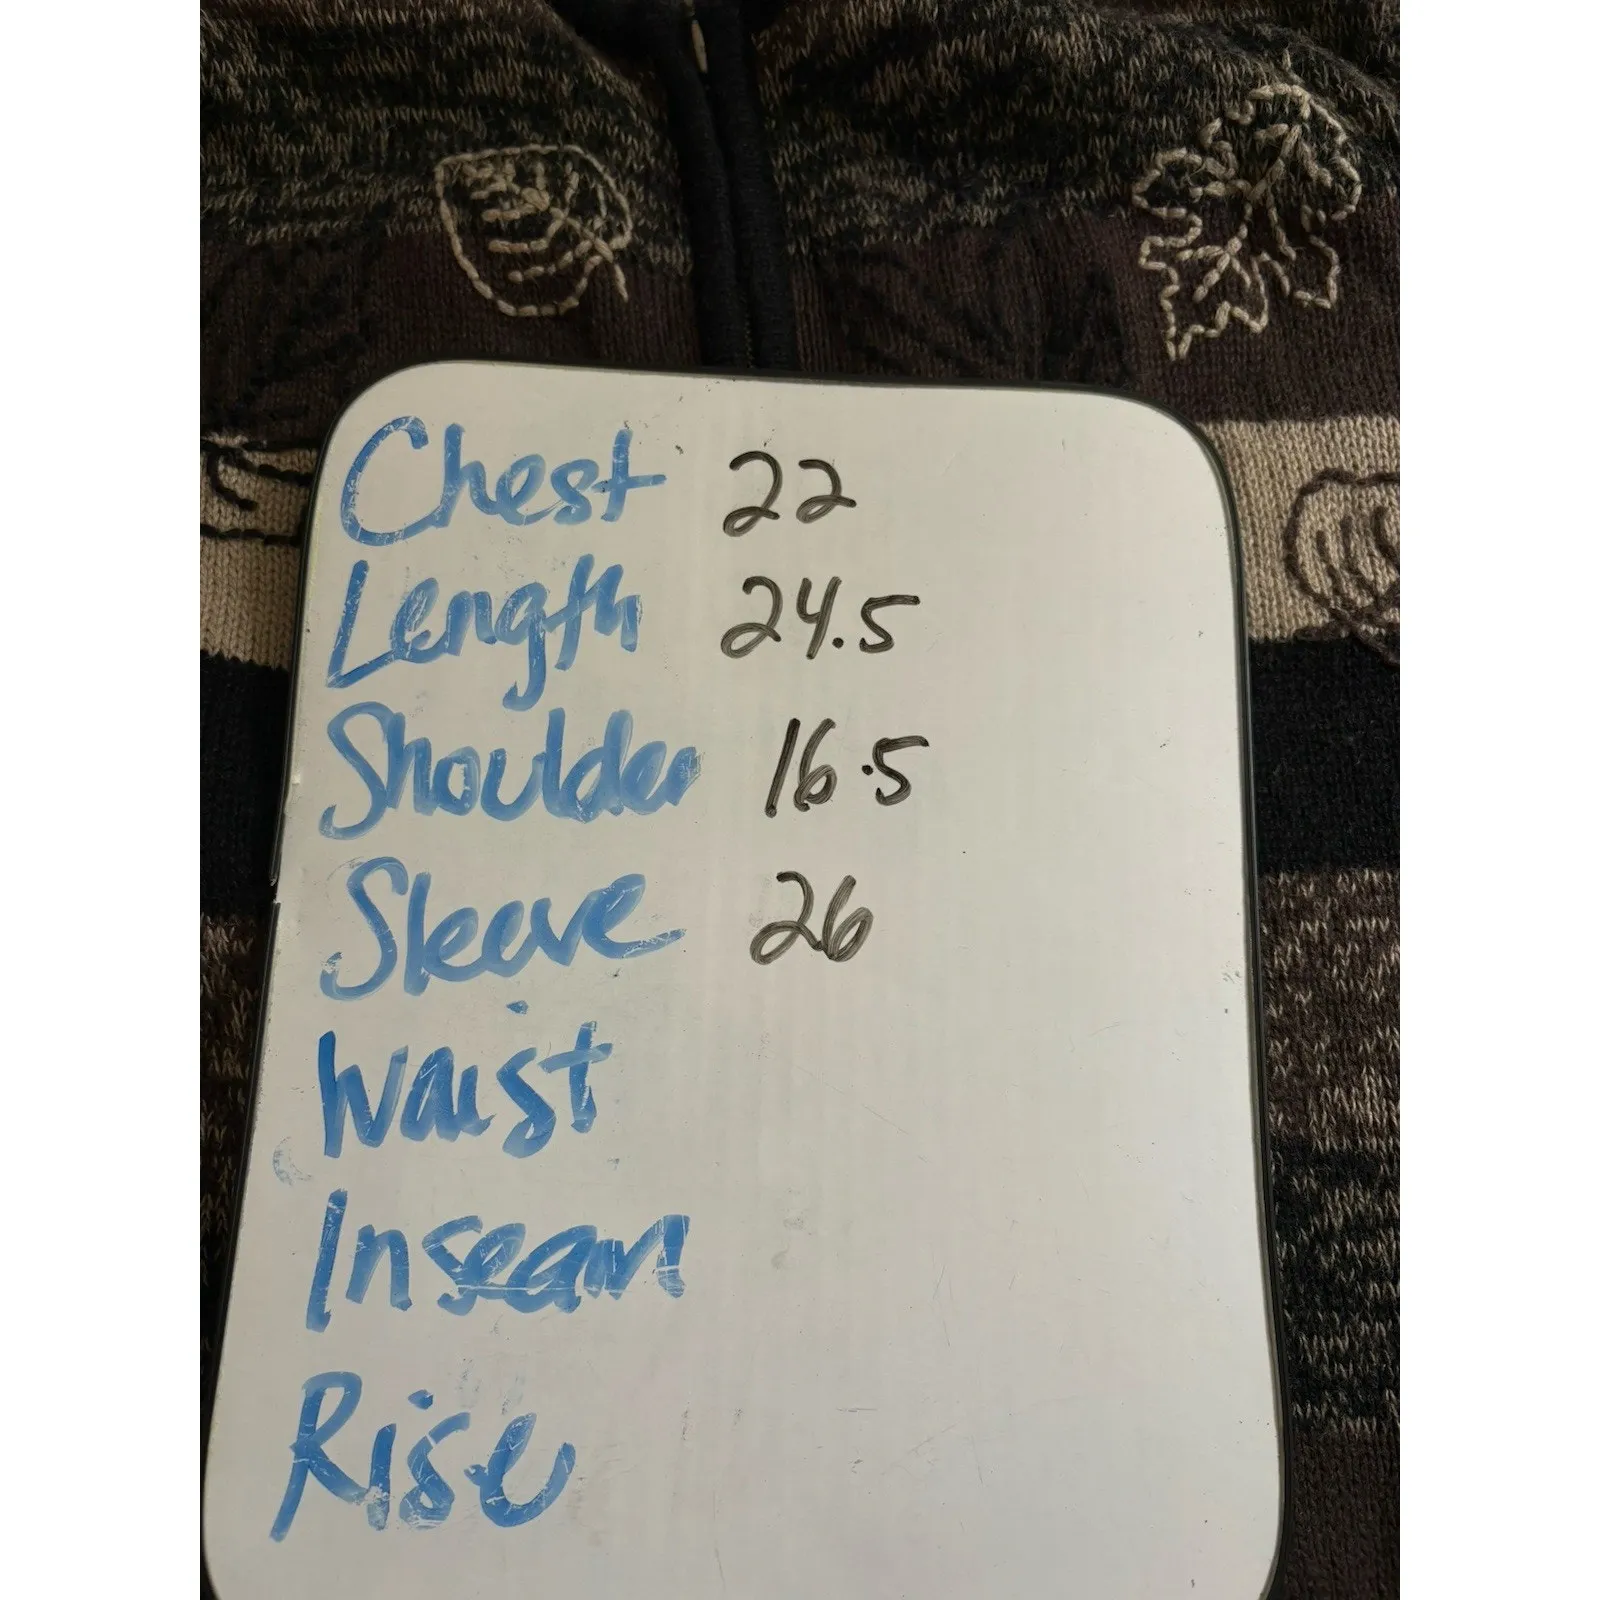 Chest 22
Length 24.5
Shoulder 16.5
Sleeve 26
Waist
Inseam
Rise